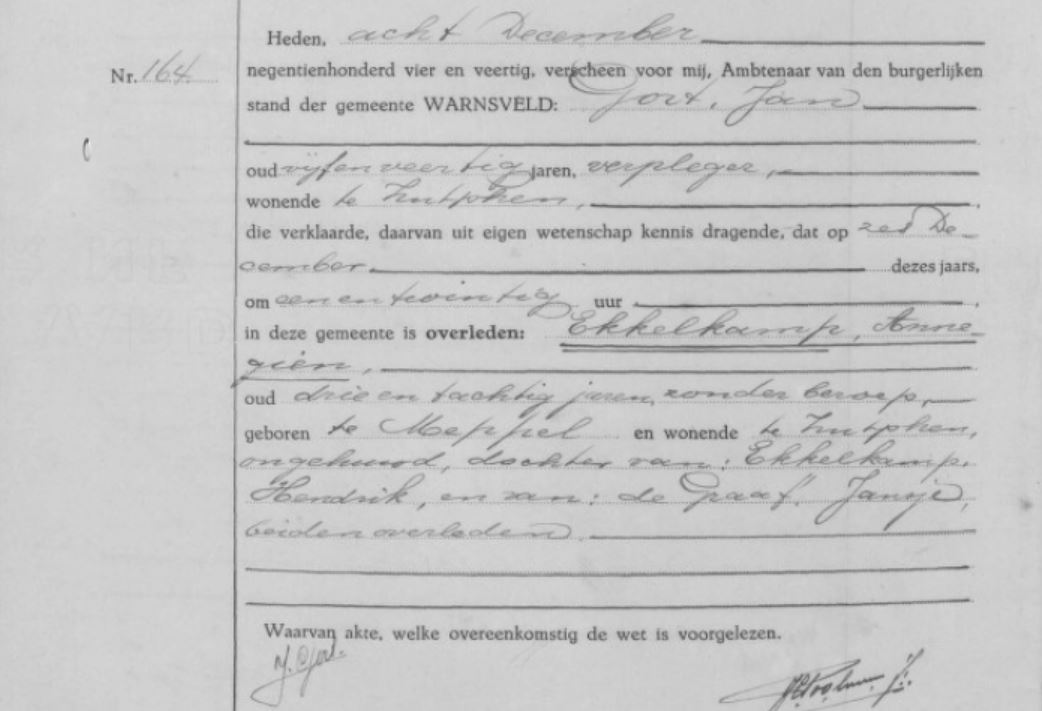 Heden, acht December
Nr. 164.
negentienhonderd vier en veertig, verscheen voor mij, Ambtenaar van den burgerlijken
stand der gemeente WARNSVELD: Gort, Jan
oud vijfenveertig jaren, verpleger,
wonende te Zutphen,
die verklaarde, daarvan uit eigen wetenschap kennis dragende, dat op zes De-
cember dezes jaars,
om eenentwintig uur
in deze gemeente is overleden: Ekkelkamp, Anne
gien,
oud drieentachtig jaren, zonder beroep,
geboren te Meppel en wonende te Zutphen,
ongehuwd, dochter van: Ekkelkamp,
Hendrik, en van: de Graaf, Jansje,
beiden overleden.
Waarvan akte, welke overeenkomstig de wet is voorgelezen.
J. Gort.